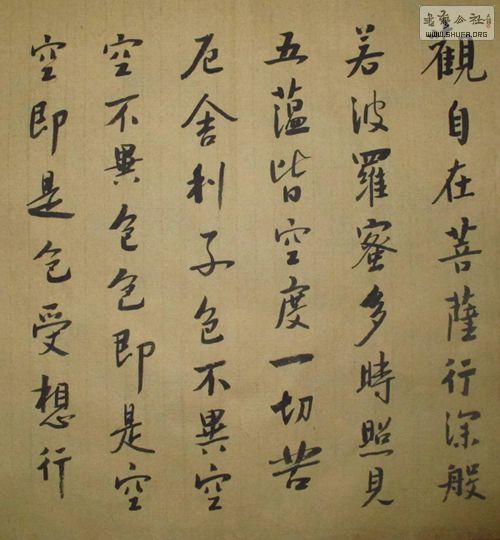 觀自在菩薩行深般
若波羅蜜多時照見
五蘊皆空度一切苦
厄舍利子色不異空
空不異色色即是空
空即是色受想行
書藝公社
WWW.SHUFA.ORG